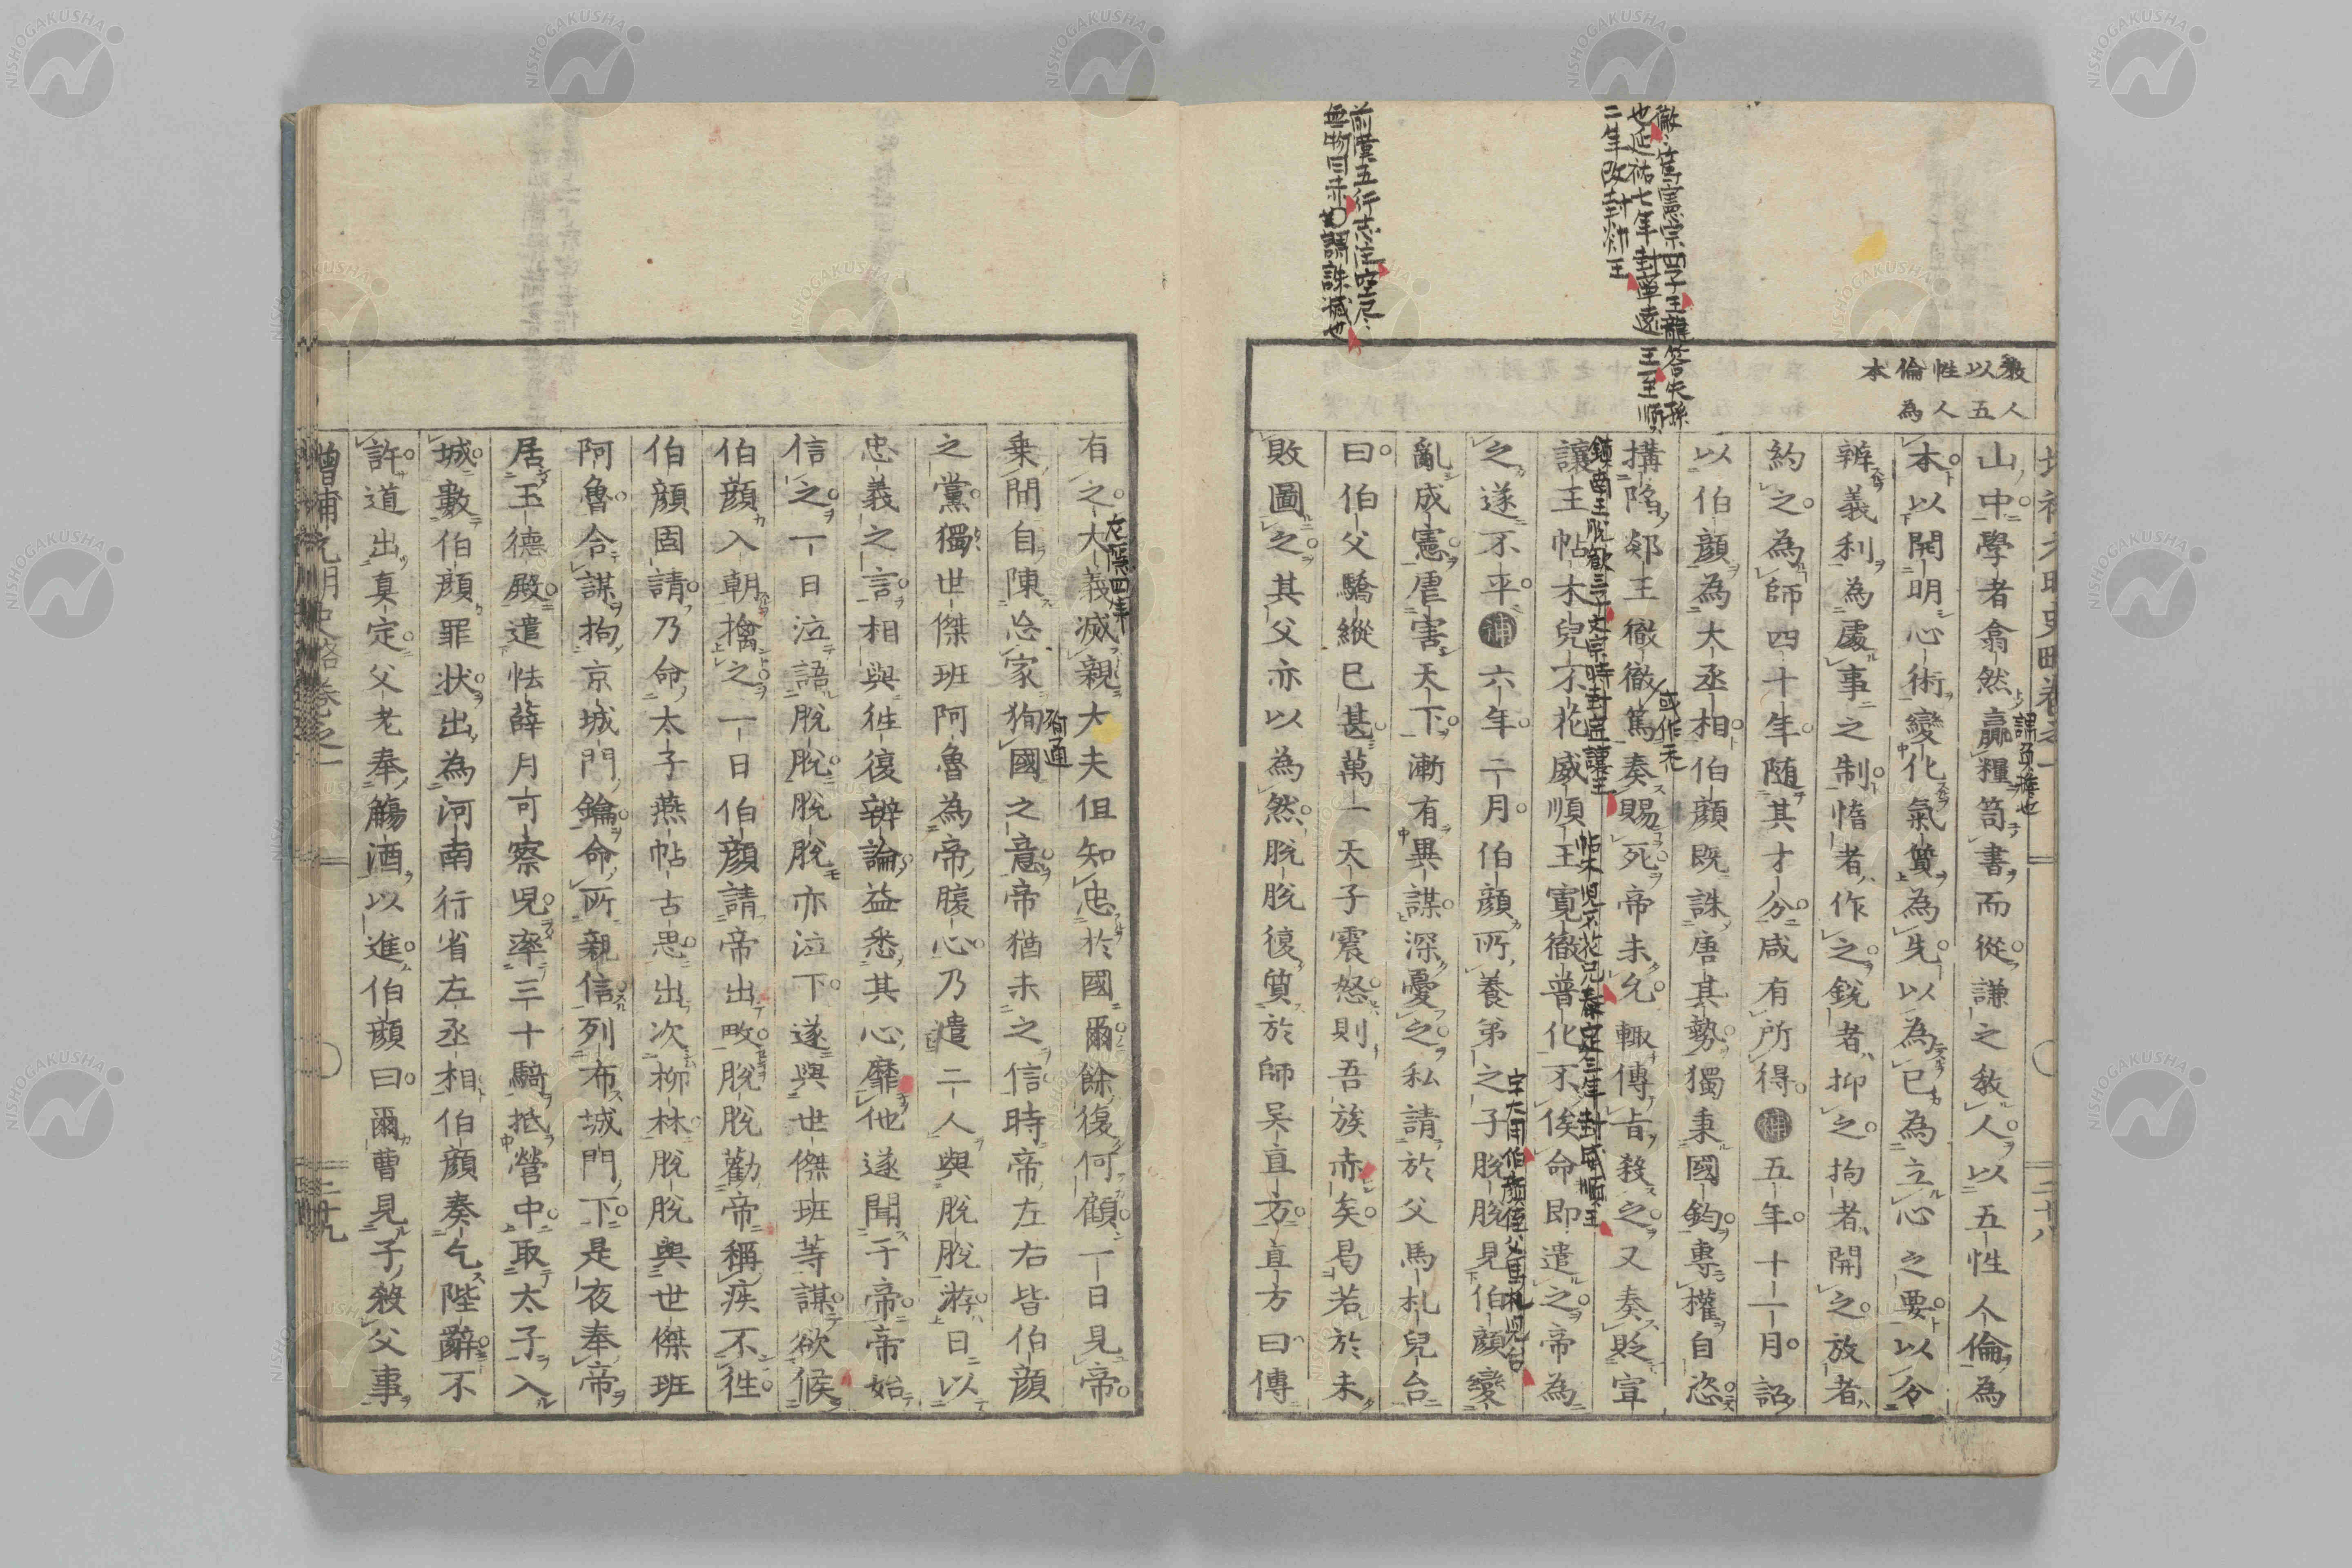 教以性倫本
人五人為
山中學者翕然贏糧笥書而從謙之教人以五性人倫為
本以開明心術變化氣質為先以為己為立心之要以分
辨義利為處事之制惰者作之銳者抑之拘者開之放者
約之為師四十年隨其才分咸有所得補五年十一月詔
以伯顏為大丞相伯顏既誅唐其勢獨秉國鈞專權自恣
搆陷郯王徹徹篤奏賜死帝未允輒傳旨殺之又奏貶宣
讓王帖木兒不花威順王寛徹普化不俟命即遣之帝為
之遂不平補六年二月伯顏所養弟之子脫脫見伯顏變
亂成憲虐害天下漸有異謀深憂之私請於父馬札兒台
曰伯父驕縱已甚萬一天子震怒則吾族赤矣曷若於未
敗圖之其父亦以為然脫脫復質於師吳直方直方曰傳
謂負擔也
或作禿
徹〻篤憲宗四子玉龍答失孫
也延祐七年封武遠王至順
二年改封郯王
鎮南王脫歡三子文宗時封宣讓王
帖木児不花兄泰定三年封威順王
字大用伯顏侄父馬札児台
前漢五行志注空尽〻
無物曰赤謂誅滅也
有之大義滅親大夫但知忠於國爾餘復何顧一日見帝
乗間自陳忘家狥國之意帝猶未之信時帝左右皆伯顏
之黨獨世傑班阿魯為帝腹心乃遣二人與脫脫游日以
忠義之言相與徃復辨論益悉其心靡他遂聞于帝帝始
信之一日泣語脫脫脫脫亦泣下遂與世傑班等謀欲候
伯顏入朝擒之一日伯顏請帝出畋脫脫勸帝稱疾不徃
伯顏固請乃命太子燕帖古思出次柳林脫脫與世傑班
阿魯合謀拘京城門鑰命所親信列布城門下是夜奉帝
居玉德殿遣怯薛月可察兒率三十騎抵營中取太子入
城數伯顏罪状出為河南行省左丞相伯顏奏乞陛辭不
許道出真定父老奉觴酒以進伯顏曰爾曹見子殺父事
左隱四年
狥通
增補元明史略卷之一
二十九